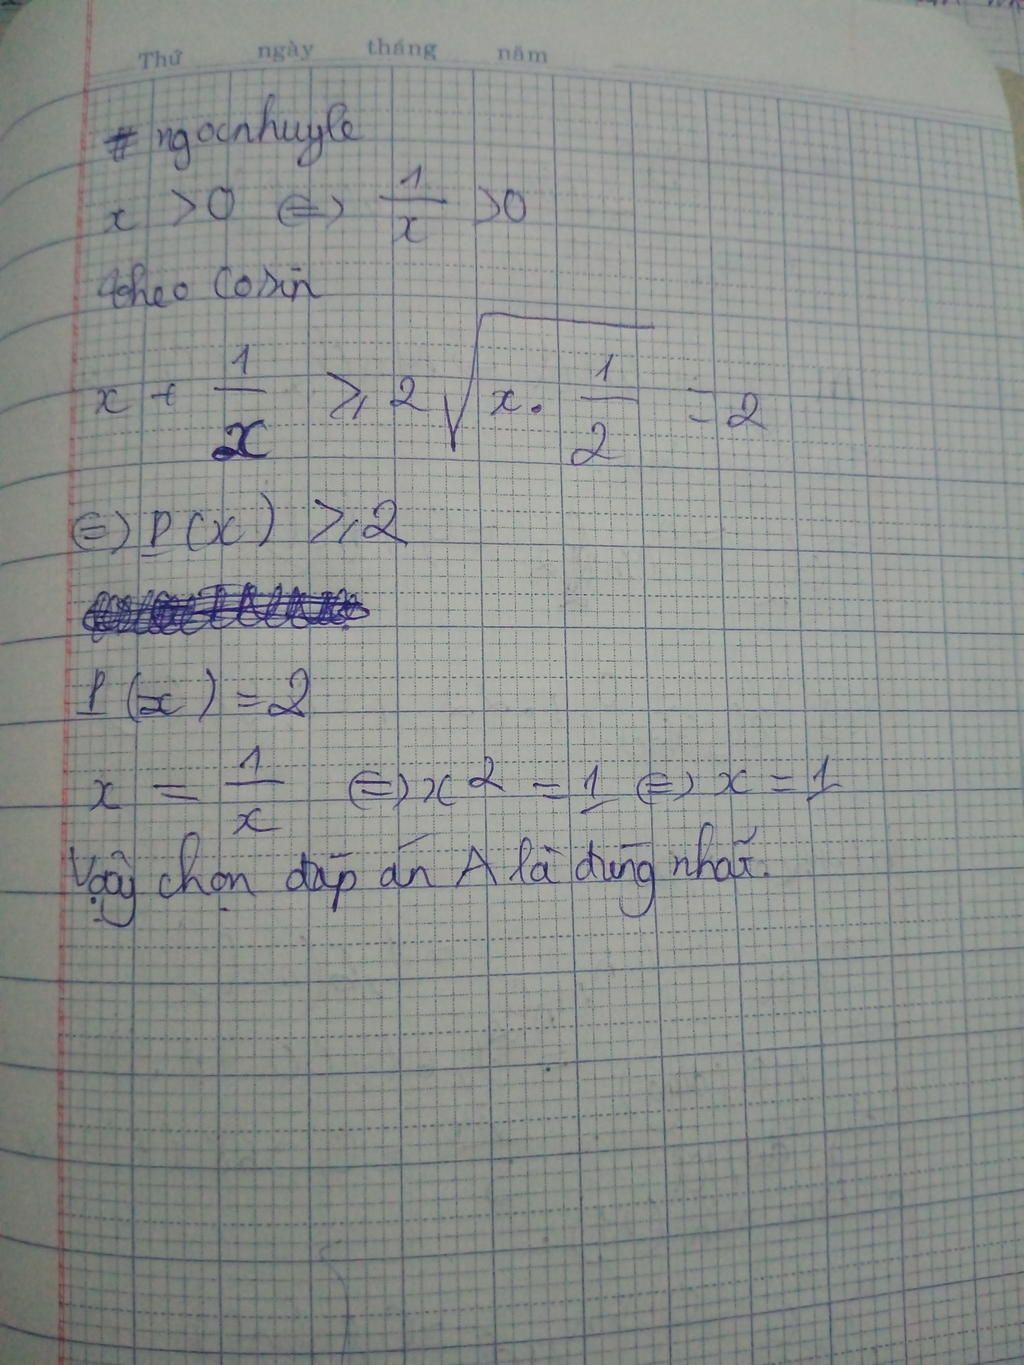 Thứ ngày tháng năm
# ngocnhuyle
x > 0 <=> 1/x > 0
theo Cosin
x + 1/x ≥ 2√(x . 1/2) = 2
<=> P(x) ≥ 2
P(x) = 2
x = 1/x <=> x² = 1 <=> x = 1
Vậy chọn đáp án A là đúng nhất.